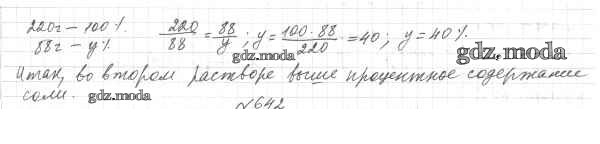 220г – 100%. 220/88 = 88/y ; y = 100·88/220 = 40; y = 40%.
88г – y%
gdz.moda gdz.moda
Итак, во втором растворе выше процентное содержание
соли. gdz.moda
№642